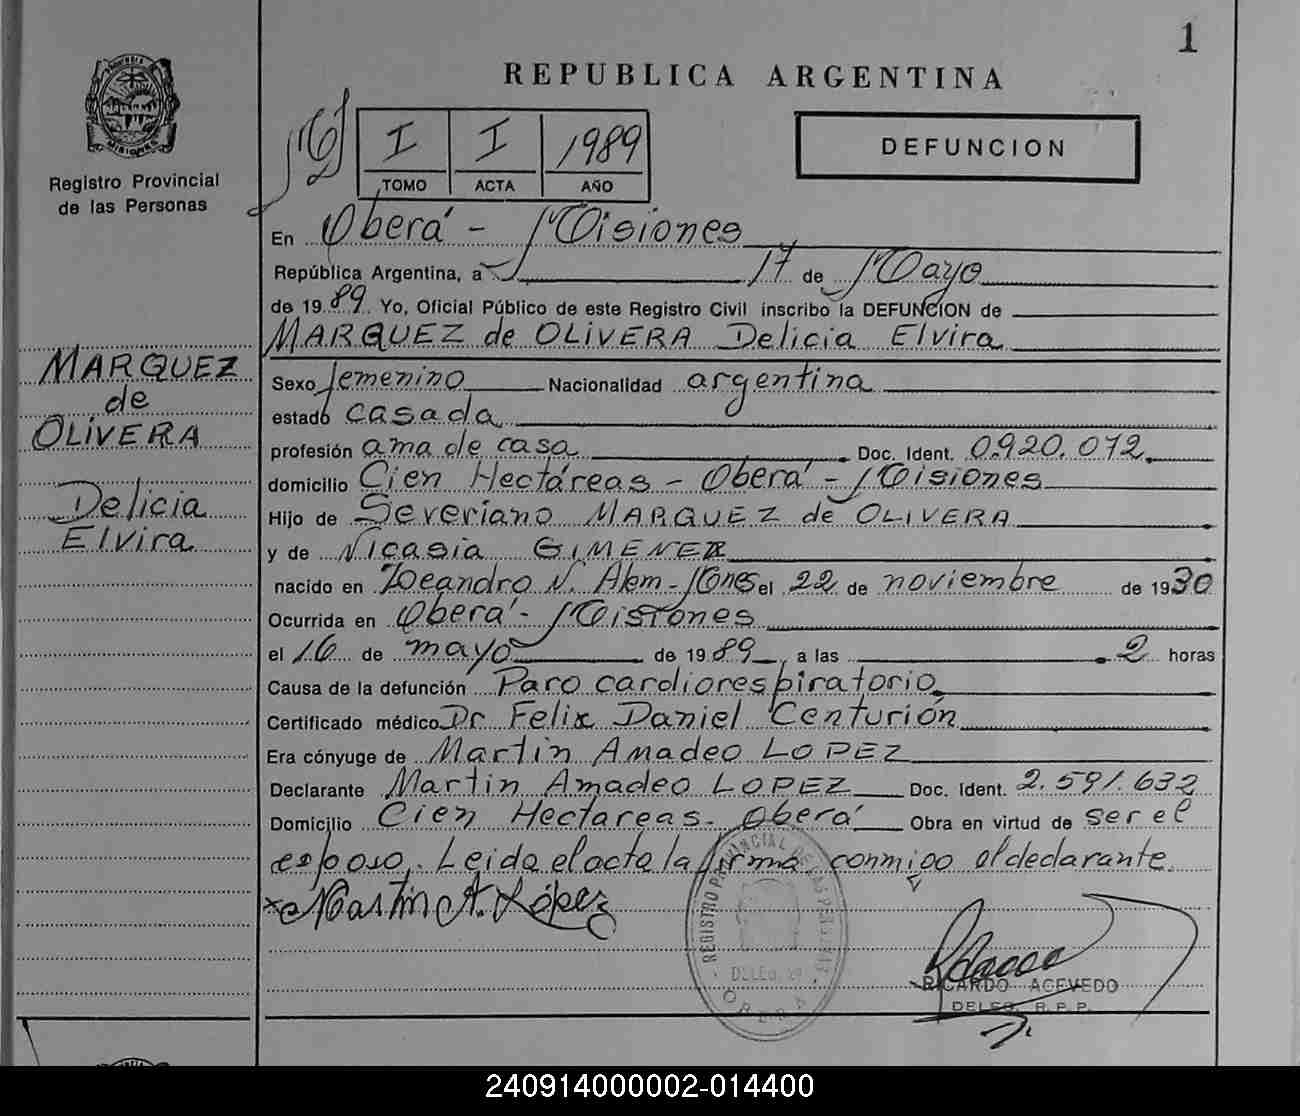 1
REPUBLICA ARGENTINA
I I 1989
TOMO ACTA AÑO
DEFUNCION
Registro Provincial
de las Personas
MARQUEZ
de
OLIVERA
Delicia
Elvira
En Oberá - Misiones
República Argentina, a 17 de Mayo
de 1989 Yo, Oficial Público de este Registro Civil inscribo la DEFUNCION de
MARQUEZ de OLIVERA Delicia Elvira
Sexo femenino Nacionalidad argentina
estado casada
profesión ama de casa Doc. Ident. 0.920.072
domicilio Cien Hectáreas - Oberá - Misiones
Hijo de Severiano MARQUEZ de OLIVERA
y de Nicasia GIMENEZ
nacido en Leandro N. Alem - Mnes el 22 de noviembre de 1930
Ocurrida en Oberá - Misiones
el 16 de mayo de 1989, a las 2 horas
Causa de la defunción Paro cardiorespiratorio
Certificado médico Dr Felix Daniel Centurión
Era cónyuge de Martin Amadeo LOPEZ
Declarante Martin Amadeo LOPEZ Doc. Ident. 2.591.632
Domicilio Cien Hectareas - Oberá Obra en virtud de ser el
esposo. Leida el acta la firma conmigo el declarante.
x Martin A. López
REGISTRO PROVINCIAL DE LAS PERSONAS
DELEG. 
OBERA
RICARDO ACEVEDO
DELEG. R. P. P.
240914000002-014400